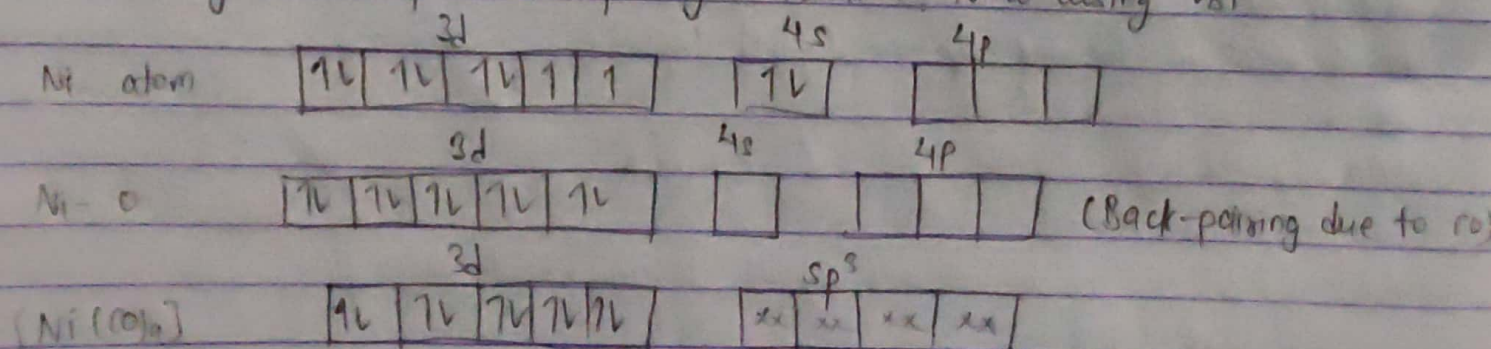 using
3d 4s 4p
Ni atom 1L 1L 1L 1 1 1L
3d 4s 4p
Ni - 0 1L 1L 1L 1L 1L (Back-pairing due to co)
3d sp³
[Ni(CO)4] 1L 1L 1L 1L 1L xx xx xx xx